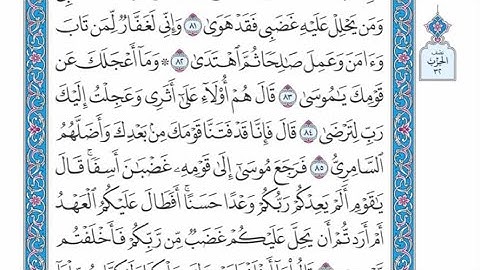 وَمَن يَحْلِلْ عَلَيْهِ غَضَبِي فَقَدْ هَوَىٰ ٨١ وَإِنِّي لَغَفَّارٌ لِّمَن تَابَ
وَءَامَنَ وَعَمِلَ صَٰلِحًا ثُمَّ ٱهْتَدَىٰ ٨٢ ۞ وَمَآ أَعْجَلَكَ عَن
قَوْمِكَ يَٰمُوسَىٰ ٨٣ قَالَ هُمْ أُو۟لَآءِ عَلَىٰٓ أَثَرِي وَعَجِلْتُ إِلَيْكَ
رَبِّ لِتَرْضَىٰ ٨٤ قَالَ فَإِنَّا قَدْ فَتَنَّا قَوْمَكَ مِنۢ بَعْدِكَ وَأَضَلَّهُمُ
ٱلسَّامِرِيُّ ٨٥ فَرَجَعَ مُوسَىٰٓ إِلَىٰ قَوْمِهِۦ غَضْبَٰنَ أَسِفًا ۚ قَالَ
يَٰقَوْمِ أَلَمْ يَعِدْكُمْ رَبُّكُمْ وَعْدًا حَسَنًا ۚ أَفَطَالَ عَلَيْكُمُ ٱلْعَهْدُ
أَمْ أَرَدتُّمْ أَن يَحِلَّ عَلَيْكُمْ غَضَبٌ مِّن رَّبِّكُمْ فَأَخْلَفْتُم
نصف
الحزب
٣٢